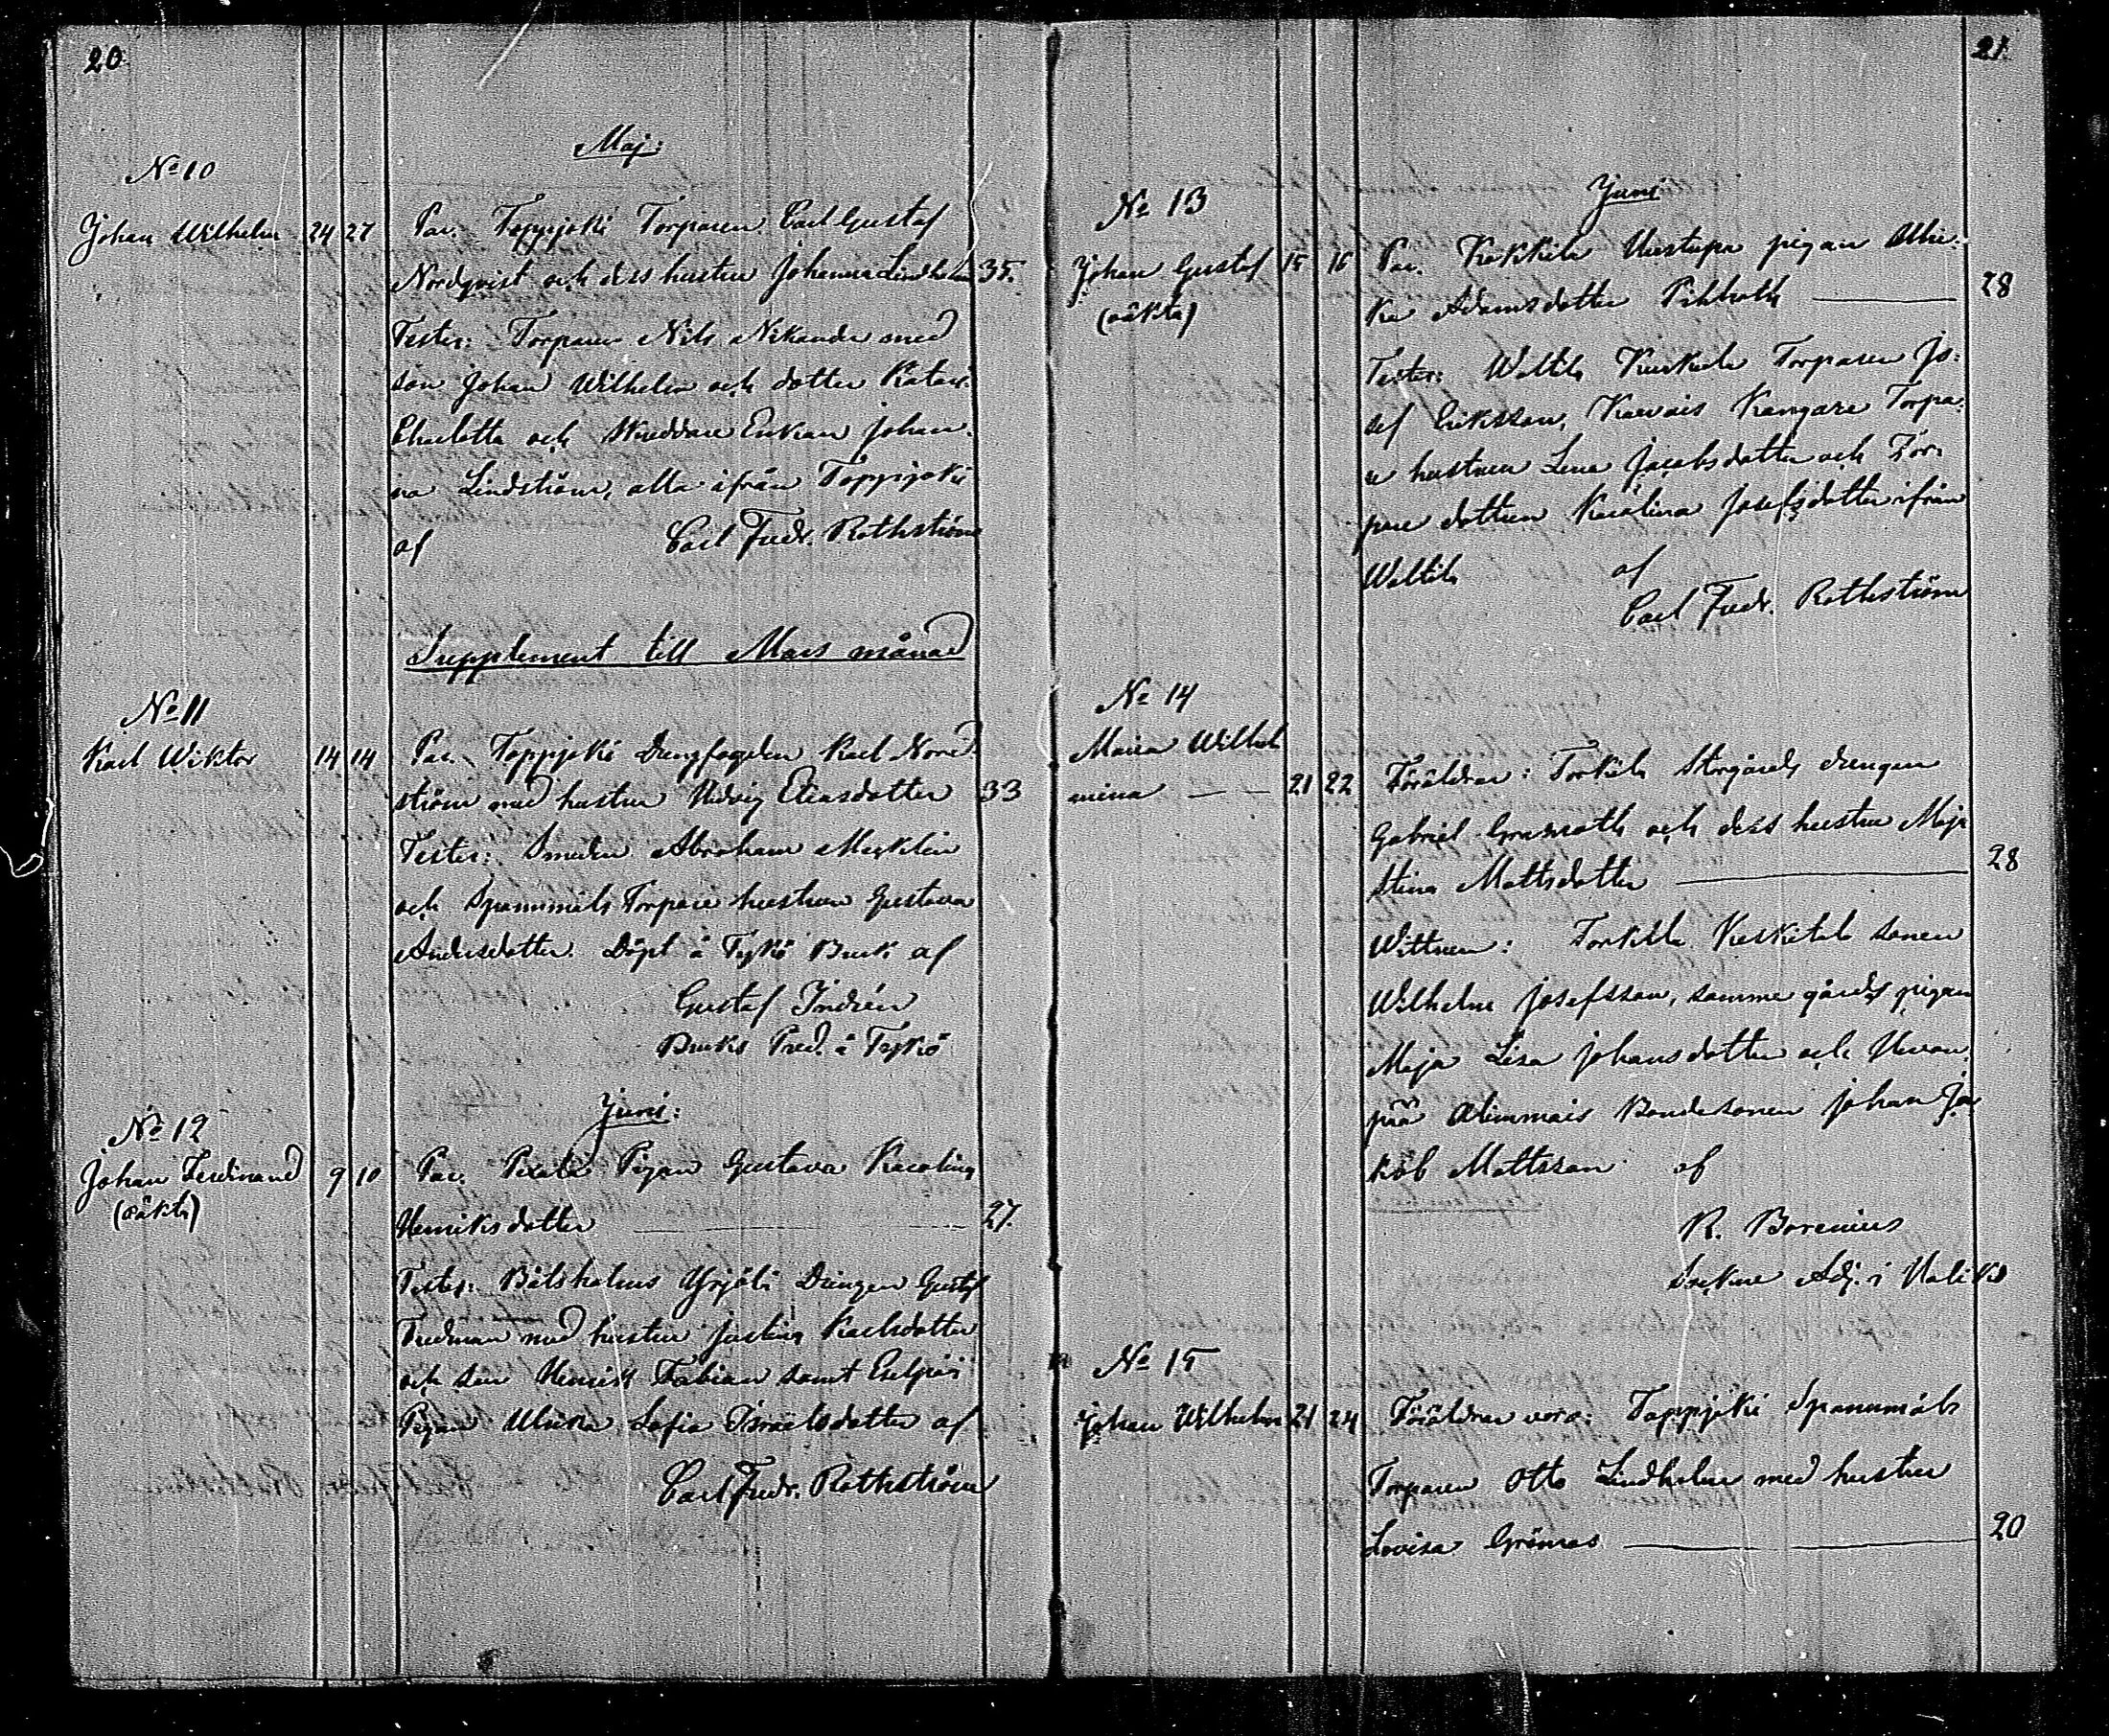 20
Maj:
No 10
Johan Wilhelm 24 27 Par. Toppjoki Torparen Carl Gustaf
Nordqvist och dess hustru Johanna Lindholm 35.
Testes: Torparen Nils Nikander med
son Johan Wilhelm och dotter Katar.
Charlotta och Skreddare Enkan Johan-
na Lindström, alla ifrån Toppjoki
af Carl Fredr. Rothström
Supplement till Mars månad
No 11
Karl Wiktor 14 14 Par. Toppjoki Drengfogden Karl Nord-
ström med hustru Hedvig Eliasdotter 33
Testes: Smeden Abraham Mecklin
och Spannmåls Torpare hustrun Gustava
Andersdotter. Döpt å Tykö Bruk af
Gustaf Indrén
Bruks Pred. å Tykö
Juni:
No 12
Johan Ferdinand 9 10 Par. Pigan Gustava Karolina
(oäkta)
Henriksdotter 27.
Testes: Yrjölä Drengen Gustaf
Fredman med hustru Justina Karlsdotter
och son Henrik Fabian samt
Pigan Ulrika Sofia Israelsdotter af
Carl Fredr. Rothström
21.
Juni
No 13
Johan Gustaf 15 16 Par. Kokkila pigan Ulri-
(oäkta)
ka Adamsdotter 28
Testes: Torparen Jo-
sef Eriksson, Kangare Torpa-
re hustrun Lena Jacobsdotter och Tor-
pare dottren Karolina Josefsdotter ifrån
af
Carl Fredr. Rothström
No 14
Maria Wilhel
mina 21 22 Föräldrar: Torkila Storgårds drengen
Gabriel Granroth och dess hustru Maja
Stina Mattsdotter 28
Wittnen: Torkila Keskitalo sonen
Wilhelm Josefsson, samme gårds pigan
Maja Lisa Johansdotter och
Bondesonen Johan Ja-
kob Mattsson af
R. Borenius
Sockne Adj. i Haliko
No 15
Johan Wilhelm 21 24 Föräldrar voro: Toppjoki Spannmåls
Torparen Otto Lindholm med hustru
Lovisa Grönroos 20